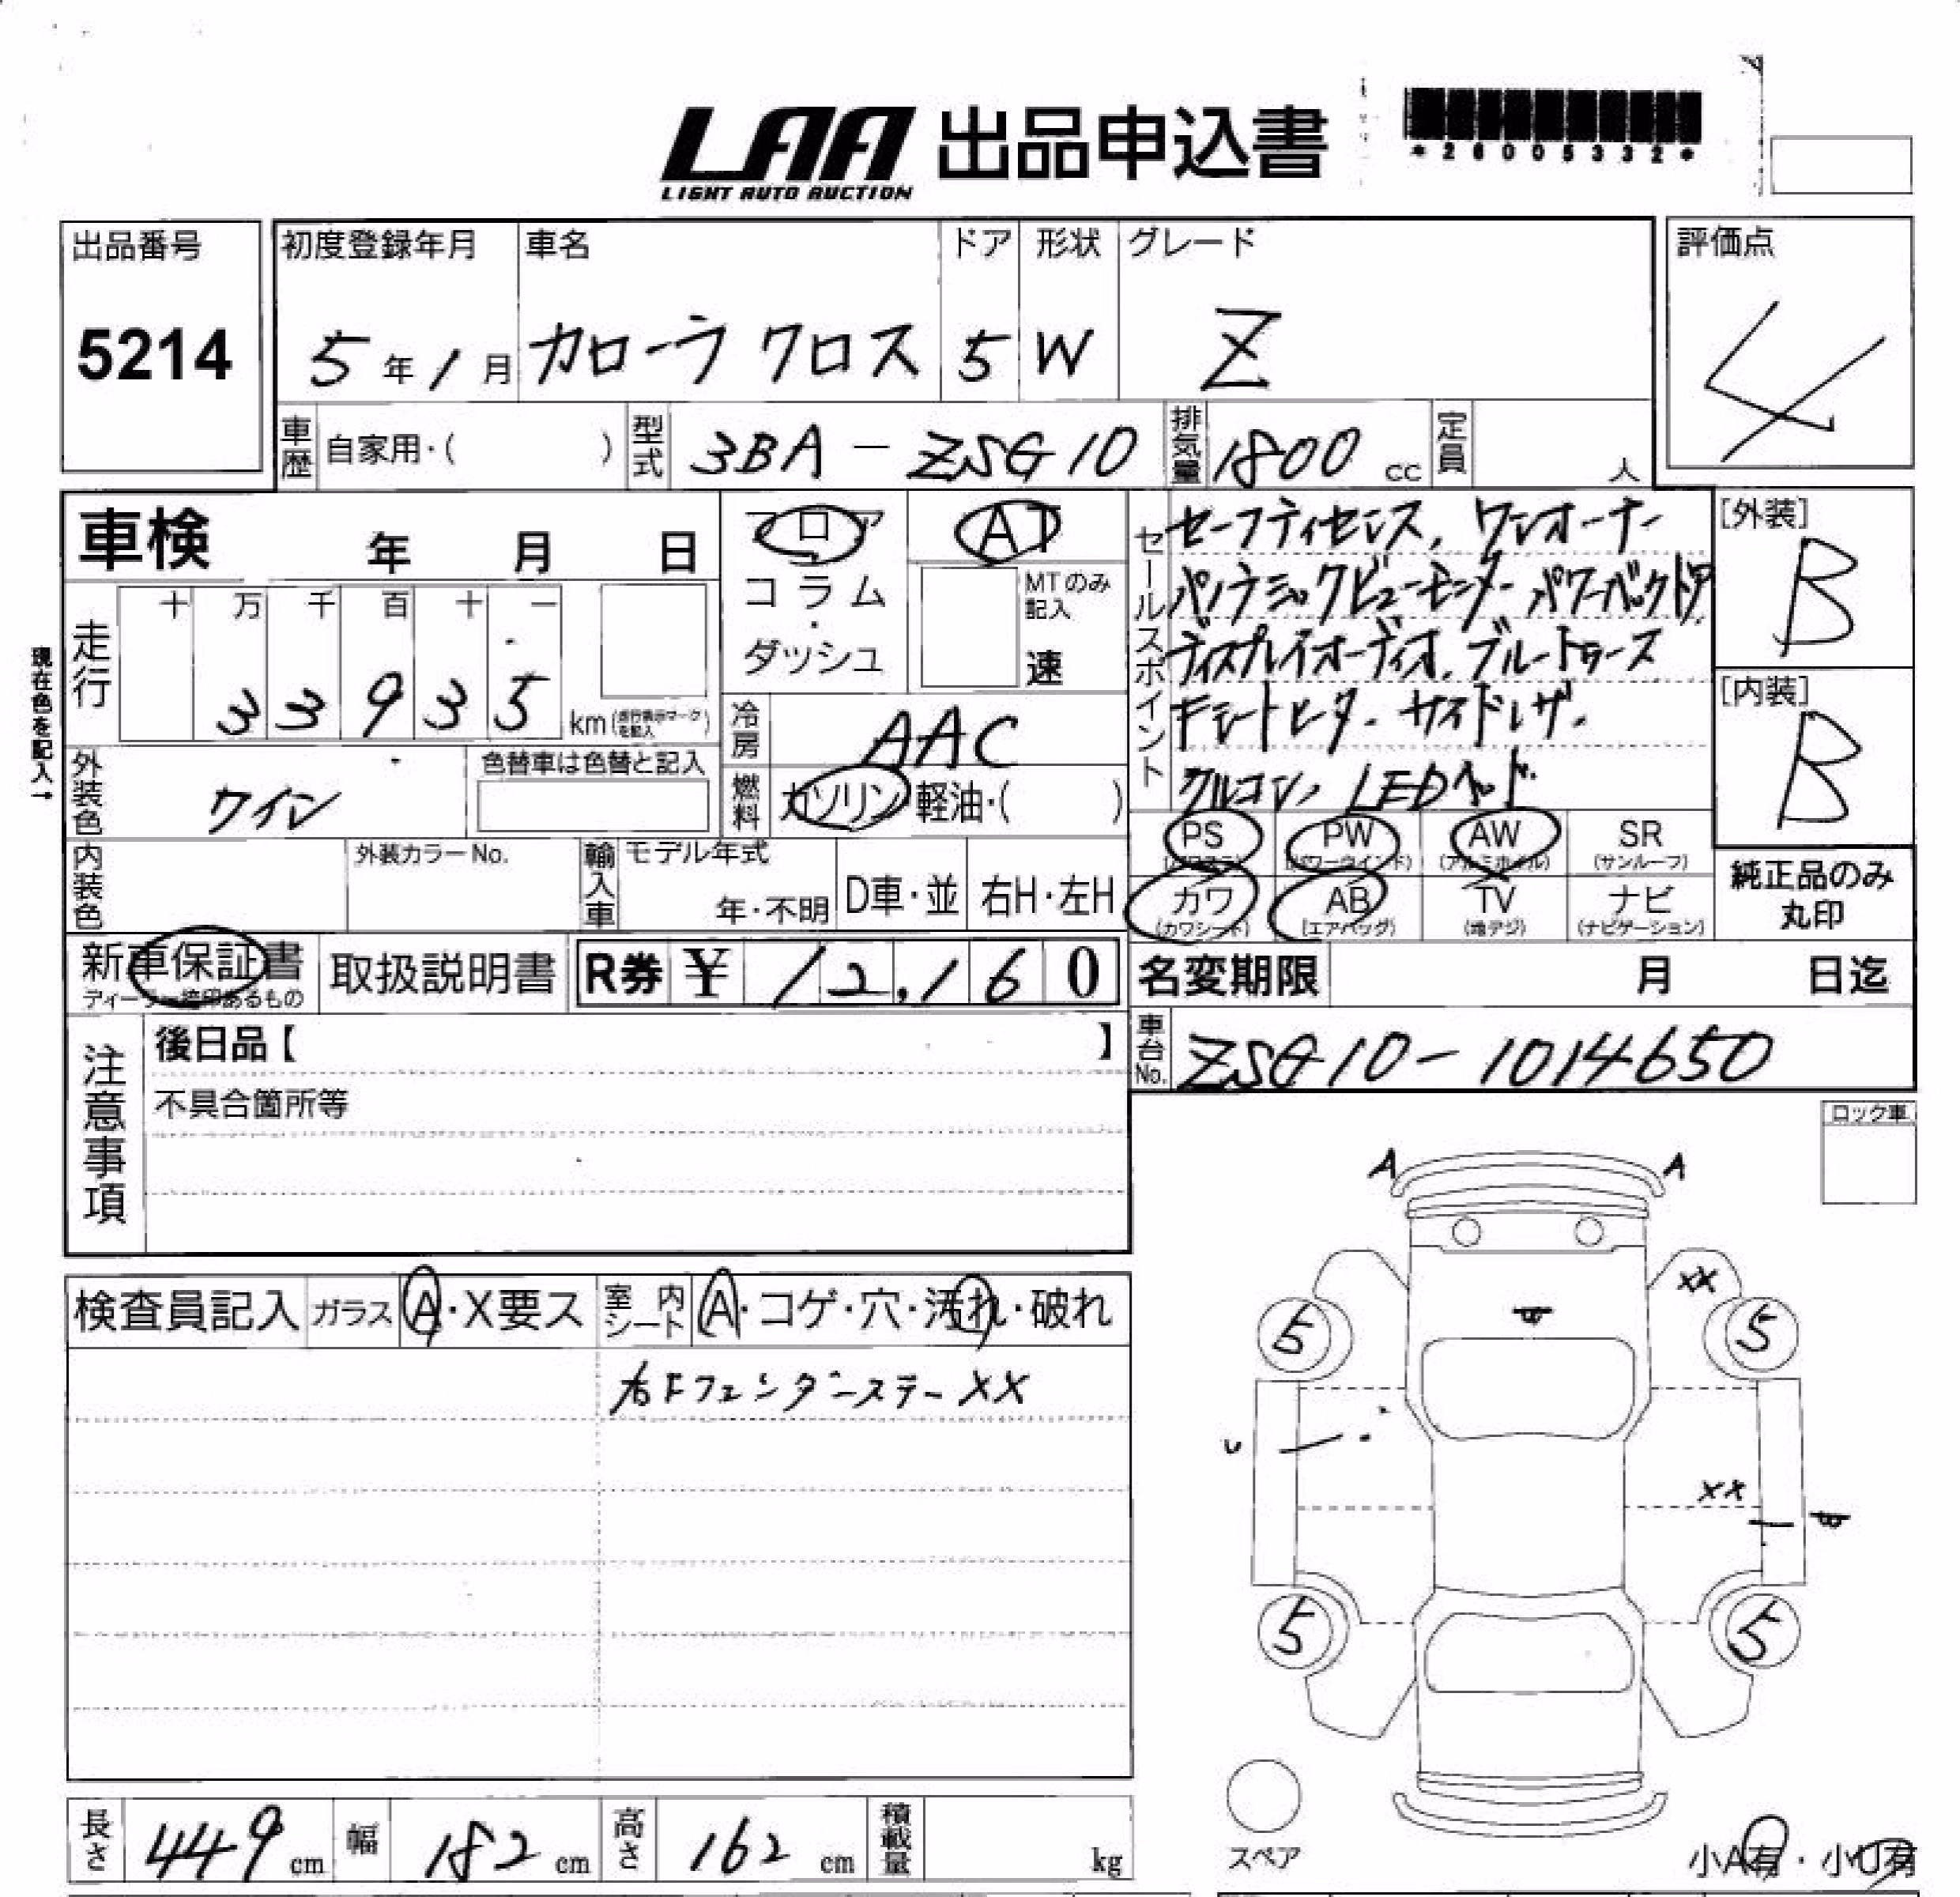 LAA 出品申込書
LIGHT AUTO AUCTION
*26005332*
出品番号
5214
初度登録年月
5年1月
車名
カローラクロス
ドア
5
形状
W
グレード
Z
評価点
4
車歴 自家用・( )
型式 3BA-ZSG10
排気量 1800 cc
定員 人
車検 年 月 日
フロア
コラム
・
ダッシュ
AT
MTのみ記入
速
セールスポイント
セーフティセンス, ワンオーナー
パノラミックビューモニター パワーバックドア
ディスプレイオーディオ, ブルートゥース
シートヒーター サイドレザー
クルコン, LEDヘッド
[外装]
B
[内装]
B
現在色を記入→
走行
十 万 千 百 十 一
33935 km
冷房 AAC
燃料 ガソリン・軽油・( )
外装色 ワイン
色替車は色替と記入
内装色
外装カラーNo.
輸入車
モデル年式
年・不明
D車・並
右H・左H
PS (パワステ)
PW (パワーウインド)
AW (アルミホイル)
SR (サンルーフ)
カワ (カワシート)
AB (エアバッグ)
TV (地デジ)
ナビ (ナビゲーション)
純正品のみ
丸印
新車保証書
ディーラー捺印あるもの
取扱説明書
R券 ¥ 12,160
名変期限 月 日迄
注意事項
後日品【 】
不具合箇所等
車台No. ZSG10-1014650
ロック車
検査員記入
ガラス A・X要ス
室内シート A・コゲ・穴・汚れ・破れ
右Fフェンダーステー XX
A A
XX
5 5
U
XX
5 5
スペア
小A有・小U有
長さ 449 cm
幅 182 cm
高さ 162 cm
積載量 kg